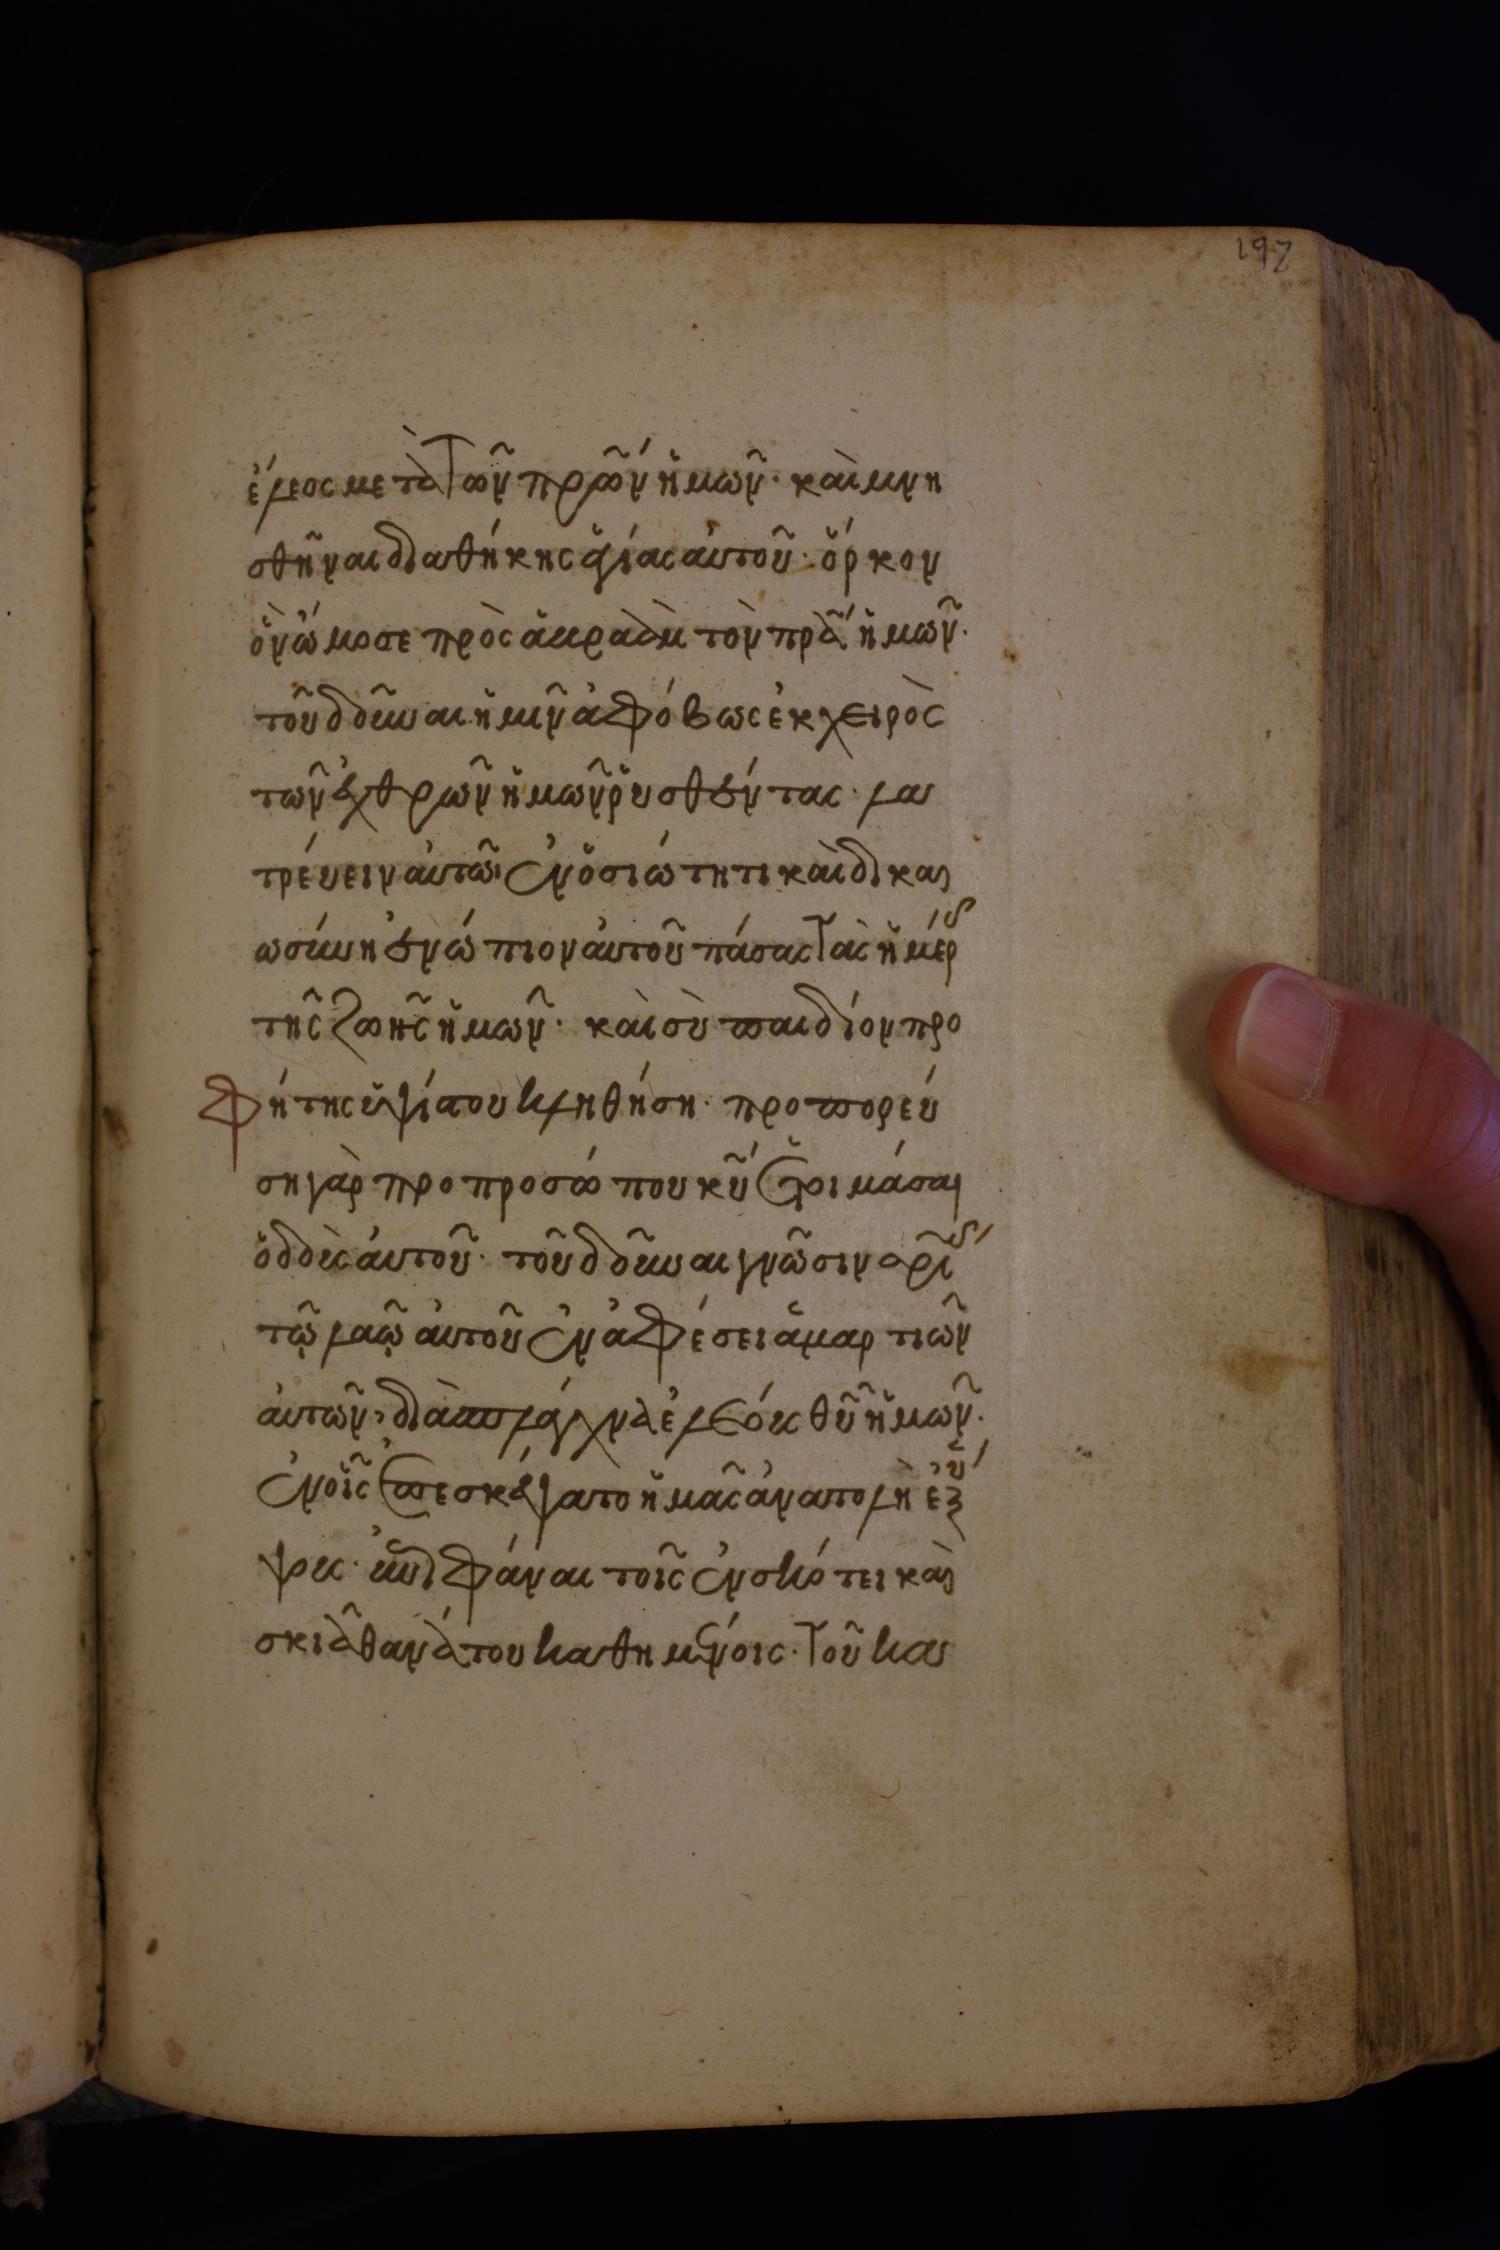 197
ἔλεος μετὰ τῶν πρῶν ἡμῶν· καὶ μνη
σθῆναι διαθήκης ἁγίας αὐτοῦ· ὅρκον
ὃν ὤμοσε πρὸς ἀβραὰμ τὸν πρᾶ ἡμῶν·
τοῦ δοῦναι ἡμῖν ἀφόβως ἐκ χειρὸς
τῶν ἐχθρῶν ἡμῶν ῥυσθέντας· λα
τρέυειν αὐτῶι ἐν ὁσιώτητι καὶ δικαι
ωσύνη ἐνώπιον αὐτοῦ πάσας τὰς ἡμέρ
τῆς ζωῆς ἡμῶν· καὶ σὺ παιδίον προ
φήτης ὑψίστου κληθήση· προπορεύ
ση γὰρ προ προσώπου κῦ ἑτοιμάσαι
ὁδοὺς αὐτοῦ· τοῦ δοῦναι γνῶσιν σρῖ
τῷ λαῷ αὐτοῦ ἐν ἀφέσει ἁμαρτιῶν
αὐτῶν, διὰ σπλάγχνα ἐλέους θῦ ἡμῶν·
ἐν οἷς ἐπεσκέψατο ἡμᾶς ἀνατολὴ ἐξ ὕ
ψους· ἐπιφάναι τοῖς ἐν σκότει καὶ
σκιᾶ θανάτου καθημένοις· τοῦ κα